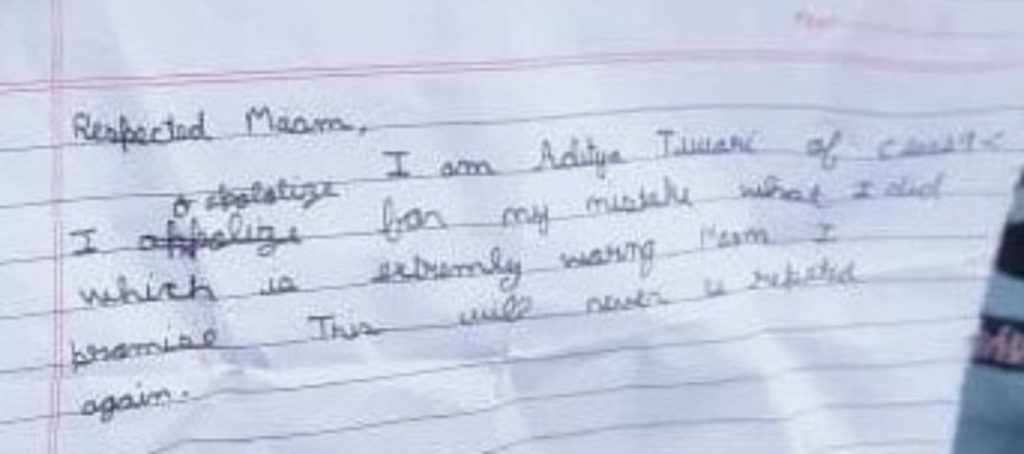 Respected Maam,
I am Aditya Tiwari of class
apolotize
I appolize for my mistake what I did
which is extremly wrong Maam I
promise This will never is repeted
again.